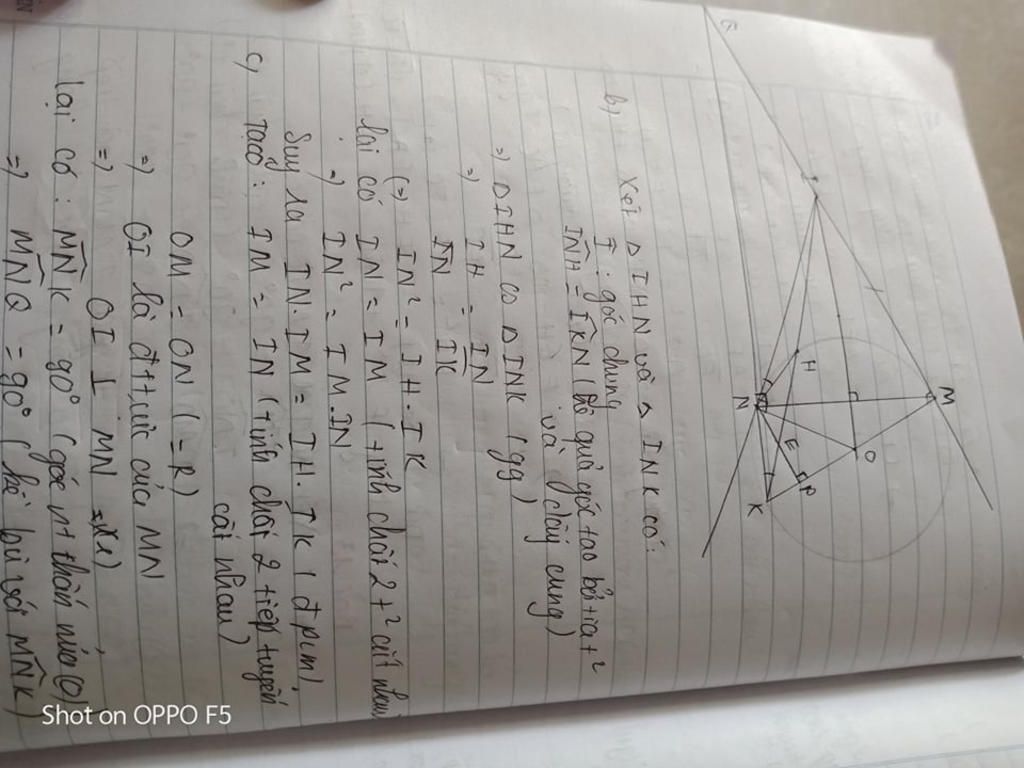 Q
I
M
H
N
O
E
P
K
b) Xét Δ IHN và Δ INK có:
I : góc chung
INH = IKN (hệ quả góc tạo bởi tia t²
và dây cung)
=) Δ IHN ∽ Δ INK (gg)
=) IH / IN = IN / IK
(=) IN² = IH . IK
lại có IN = IM (tính chất 2 t² cắt nhau)
=) IN² = IM . IN
Suy ra IN . IM = IH . IK (đpcm)
c) Ta có : IM = IN (tính chất 2 tiếp tuyến
cắt nhau)
OM = ON (= R)
=) OI là đ trực của MN
=) OI ⊥ MN
lại có : MNK = 90° (góc nt chắn nửa (O))
=) MNQ = 90° (kề bù với MNK)
Shot on OPPO F5